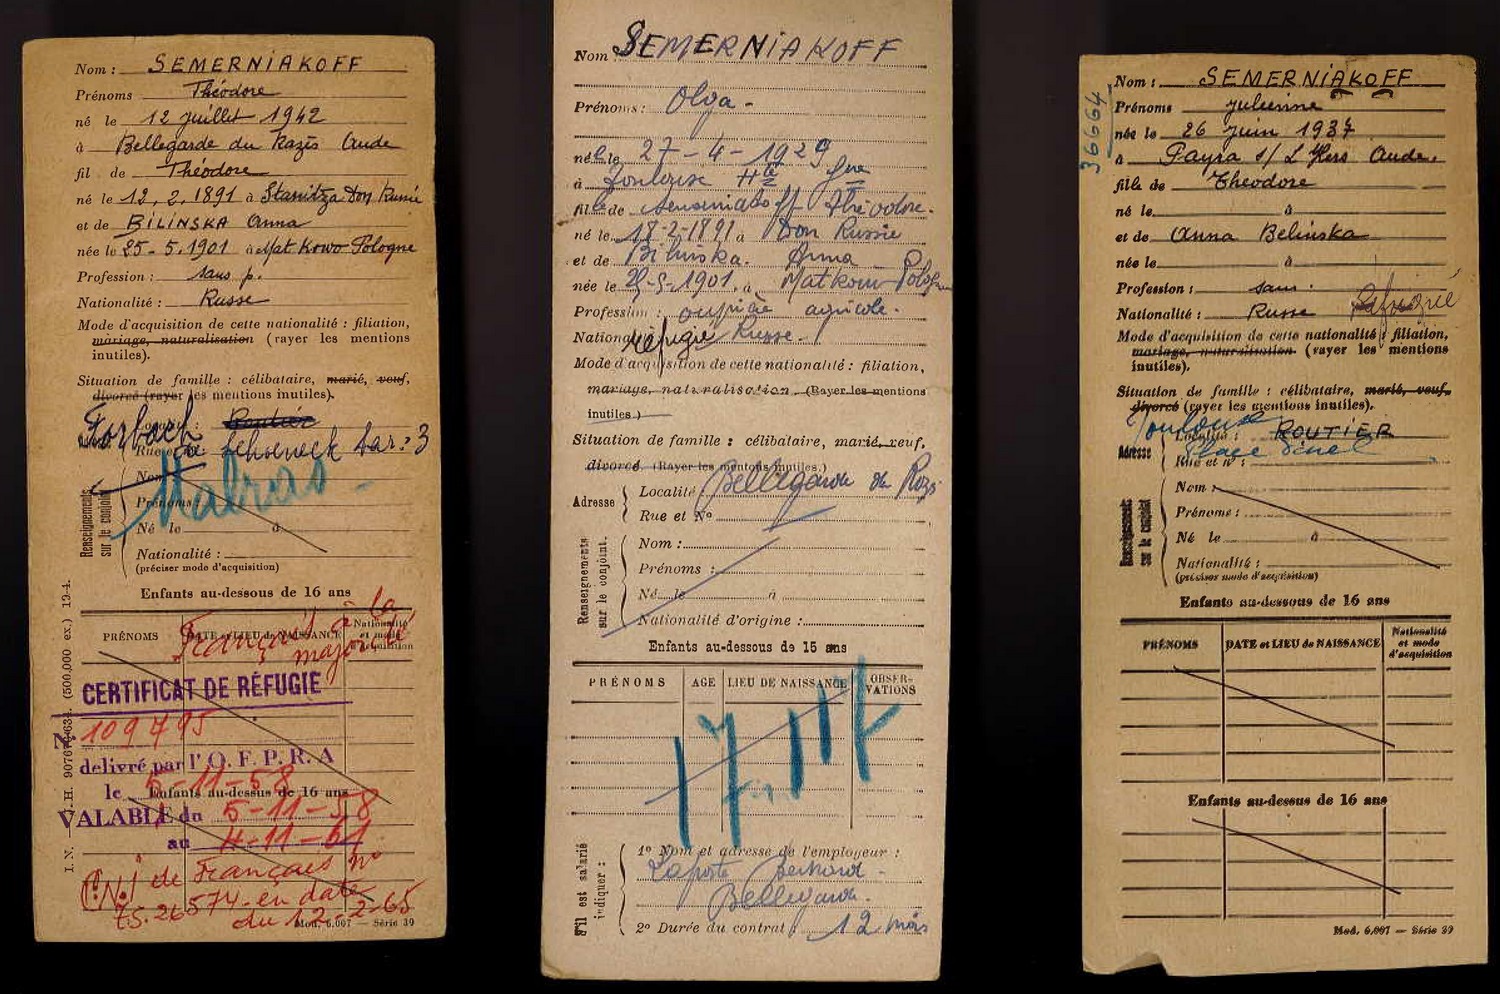 Nom : SEMERNIAKOFF
Prénoms Théodore
né le 12 juillet 1942
à Bellegarde du Razès Aude
fil de Théodore
né le 12.2.1891 à Stanitza Don Russie
et de BILINSKA Anna
née le 25-5.1901 à Mat Kowo Pologne
Profession : sans p.
Nationalité : Russe
Mode d'acquisition de cette nationalité : filiation,
mariage, naturalisation (rayer les mentions
inutiles).
Situation de famille : célibataire, marié, veuf,
divorcé (rayer les mentions inutiles).
Forbach Routier
Rue Schoeneck bar: 3
Malras
Renseignements
sur le conjoint
Nom
Prénoms :
Né le à
Nationalité :
(préciser mode d'acquisition)
Enfants au-dessous de 16 ans
PRÉNOMS DATE et LIEU de NAISSANCE Nationalité et mode d'acquisition
Français à la
majorité
CERTIFICAT DE RÉFUGIE
N° 109795
délivré par l'O. F. P. R. A
le 5-11-58
Enfants au-dessus de 16 ans
VALABLE du 5-11-58
au 4-11-61
C.N.I de Français n°
75.26 574 en date
du 12-2-65
Mod. 6.007 — Série 39
I. N. V. H. (500,000 ex.) 13-4.
Nom SEMERNIAKOFF
Prénoms : Olga -
née le 27-4-1929
à Toulouse Hte Gne
fille de Semerniakoff Théodore.
né le 18-2-1891 à Don Russie
et de Bilinska. Anna
née le 25-5-1901. à Matkowo Pologne
Profession : ouvrière agricole.
Nationalité réfugié Russe.
Mode d'acquisition de cette nationalité : filiation,
mariage, naturalisation. (Rayer les mentions
inutiles.)
Situation de famille : célibataire, marié, veuf,
divorcé. (Rayer les mentons inutiles.)
Adresse
Localité : Bellegarde du Razès
Rue et N°
Renseignements
sur le conjoint.
Nom :
Prénoms :
Né le à
Nationalité d'origine :
Enfants au-dessous de 15 ans
PRÉNOMS AGE LIEU DE NAISSANCE OBSER-VATIONS
S'il est salarié
indiquer :
1° Nom et adresse de l'employeur :
Laporte Bernard -
Bellegarde.
2° Durée du contrat : 12 mois
36664
Nom : SEMERNIAKOFF
Prénoms Julienne
née le 26 juin 1937
à Payra s/ L'Hers Aude.
fille de Théodore
né le à
et de Anna Belinska
née le à
Profession : sans.
Nationalité : Russe Réfugié
Mode d'acquisition de cette nationalité : filiation,
mariage, naturalisation (rayer les mentions
inutiles).
Situation de famille : célibataire, marié, veuf,
divorcé (rayer les mentions inutiles).
Toulouse
Adresse
Localité : ROUTIER
Rue et n° : Place Pinel
Renseignements
sur le conjoint
Nom :
Prénoms :
Né le à
Nationalité :
(préciser mode d'acquisition)
Enfants au-dessous de 16 ans
PRÉNOMS DATE et LIEU de NAISSANCE Nationalité et mode d'acquisition
Enfants au-dessus de 16 ans
Mod. 6.007 — Série 39